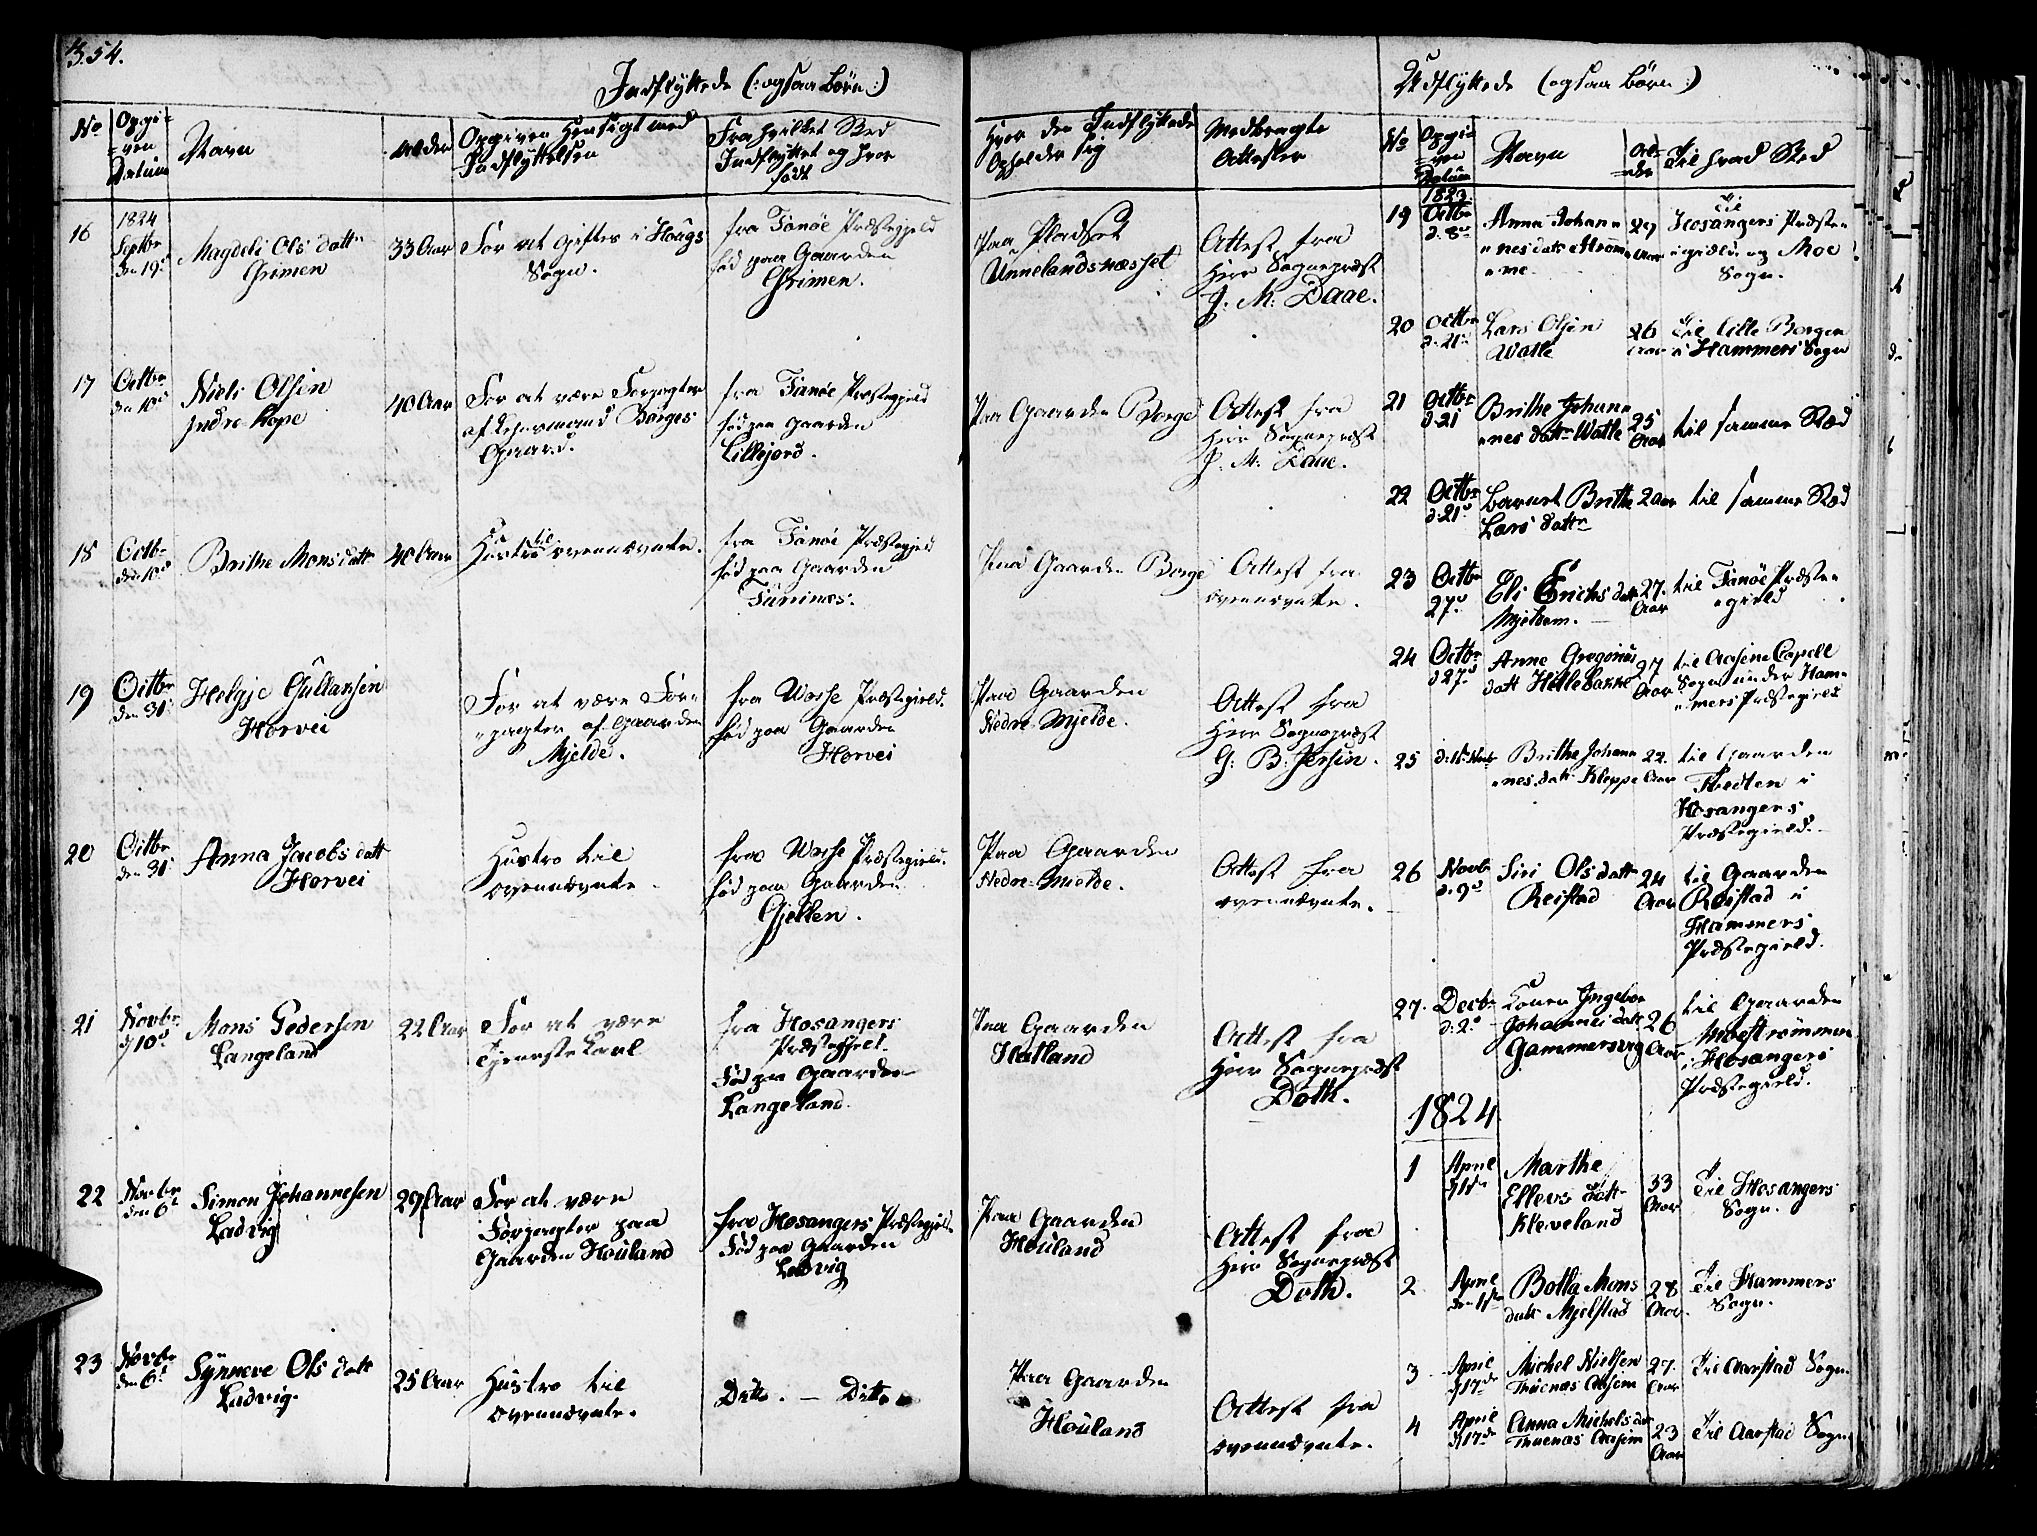 354.
Indflyttede (: ogsaa Børn :)
No
Opgi-
ven
Datum
Navn
Alder
Opgiven Hensigt med
Indflyttelsen
Fra hvilket Sted
Indflyttet og hvor
født
Hvor den Indflyttede
Opholder sig
Medbragte
Attester
16
1824
Septbr
den 19de
Magdeli Ols datter
Grimen
33 Aar
For at giftes i Hougs
Sogn.
fra Fanøe Præstegjeld
fød paa Gaarden
Grimen.
Paa Pladset
Unnelandsnæsset
Attest fra
Herr Sognepræst
J. M. Daae.
17
Octbr
den 10d
Niels Olsen
Indre Hope
40 Aar
For at være Forpagter
af Lehnsmand Borges
Gaard.
fra Fanøe Præstegjeld
fød paa Gaarden
Lillejord.
Paa Gaarden Borge
Attest fra
Herr Sognepræst
J. M. Daae.
18
Octb
den 10d
Brithe Mons datt
40 Aar
Hustro til ovennævnte.
fra Fanøe Præstegjeld
fød paa Gaarden
Paa Gaarden Borge
Attest fra
ovennævnte.
19
Octbr
den 31
Helgje Gullachsen
Horvei
For at være For-
pagter af Gaarden
Mjelde.
fra Wosse Præstegield.
fød paa Gaarden
Horvei
Paa Gaarden
Nedre Mjelde.
Attest fra
Herr Sognepræst
G. B. Jersin.
20
Octbr
den 31
Anna Jacobs datt
Horvei
Hustro til
ovennævnte.
fra Wosse Præstegield.
fød paa Gaarden
Gjellen.
Paa Gaarden
Nedre Mjelde.
Attest fra
ovennævnte.
21
Novbr
d 10d
Mons Pedersen
Langeland
22 Aar
For at være
Tjenestekarl
fra Hosangers
Præstegjeld
Fød paa Gaarden
Langeland.
Paa Gaarden
Hatland
Attest fra
Herr Sognepræst
Doth.
22
Novbr
den 6t
Simon Johannesen
Ladvig
29 Aar
For at være
Forpagter paa
Gaarden Houland
fra Hosangers Præstegjeld
Fød paa Gaarden
Ladvig
Paa Gaarden
Houland
Attest fra
Herr Sognepræst
Doth.
23
Novbr
den 6t
Synneve Ols datt
Ladvig.
25 Aar
Hustro til
ovennævnte.
Ditto. — Ditto
Paa Gaarden
Houland
Attest fra
ovennævnte.
Udflyttede (ogsaa Børn :)
No
Opgi-
ven
Datum
Navn
Al-
der
Til hvad Sted
19
1823
Octbr
d. 8de
Anna Johan-
nes datt Strøm-
me
29
Aar
Til
Hosangers Præste-
gield og Moe
Sogn.
20
Octbr
d. 21d
Lars Olsen
Watle
26
Aar
Til lille Bergen
i Hammers Sogn
21
Octbr
d. 21
Brithe Johan-
nes datter Watle
25
Aar
til samme Stæd
22
Octbr
d. 21d
Barnet Brithe
Lars datter
2 Aar
til samme Stæd
23
Octbr
27d
Eli Erichs datt
Mjeldem.
27.
Aar
til Fanøe Præste-
gield
24
Octbr
d 27d
Anne Gregorius
datt Hellebakke
27
Aar
til Aasene Capell
Sogn under Ham-
mers Præstegield
25
Brithe Johan-
nes. datt Kleppe
22.
Aar
til Gaarden
i
Hosangers
Præstegield.
26
Novbr
d. 9d
Siri Ols datt
Reistad
24
Aar
til Gaarden
Reistad i
Hammers
Præstegield.
27.
Decbr
d: 2d
Konen Ingebor
Johannes datt
Gammersvig
26
Aar
til Gaarden
Moestrømmen
i Hosangers
Præstegield.
1824
1
April
Marthe
Ellevs datt
Kleveland
33
Aar
Til Hosangers
Sogn.
2
April
Botla Mons
datt Mjelstad
28
Aar
Til Hammers
Sogn.
3
April
d 17de
Michel Nielsen
Thuenæs Aasem
27.
Aar
Til Aarstad Sogn
4
April
d 17de
Anna Michels dat
Thuenæs Aasem
23
Aar
Til Aarstad Sogn